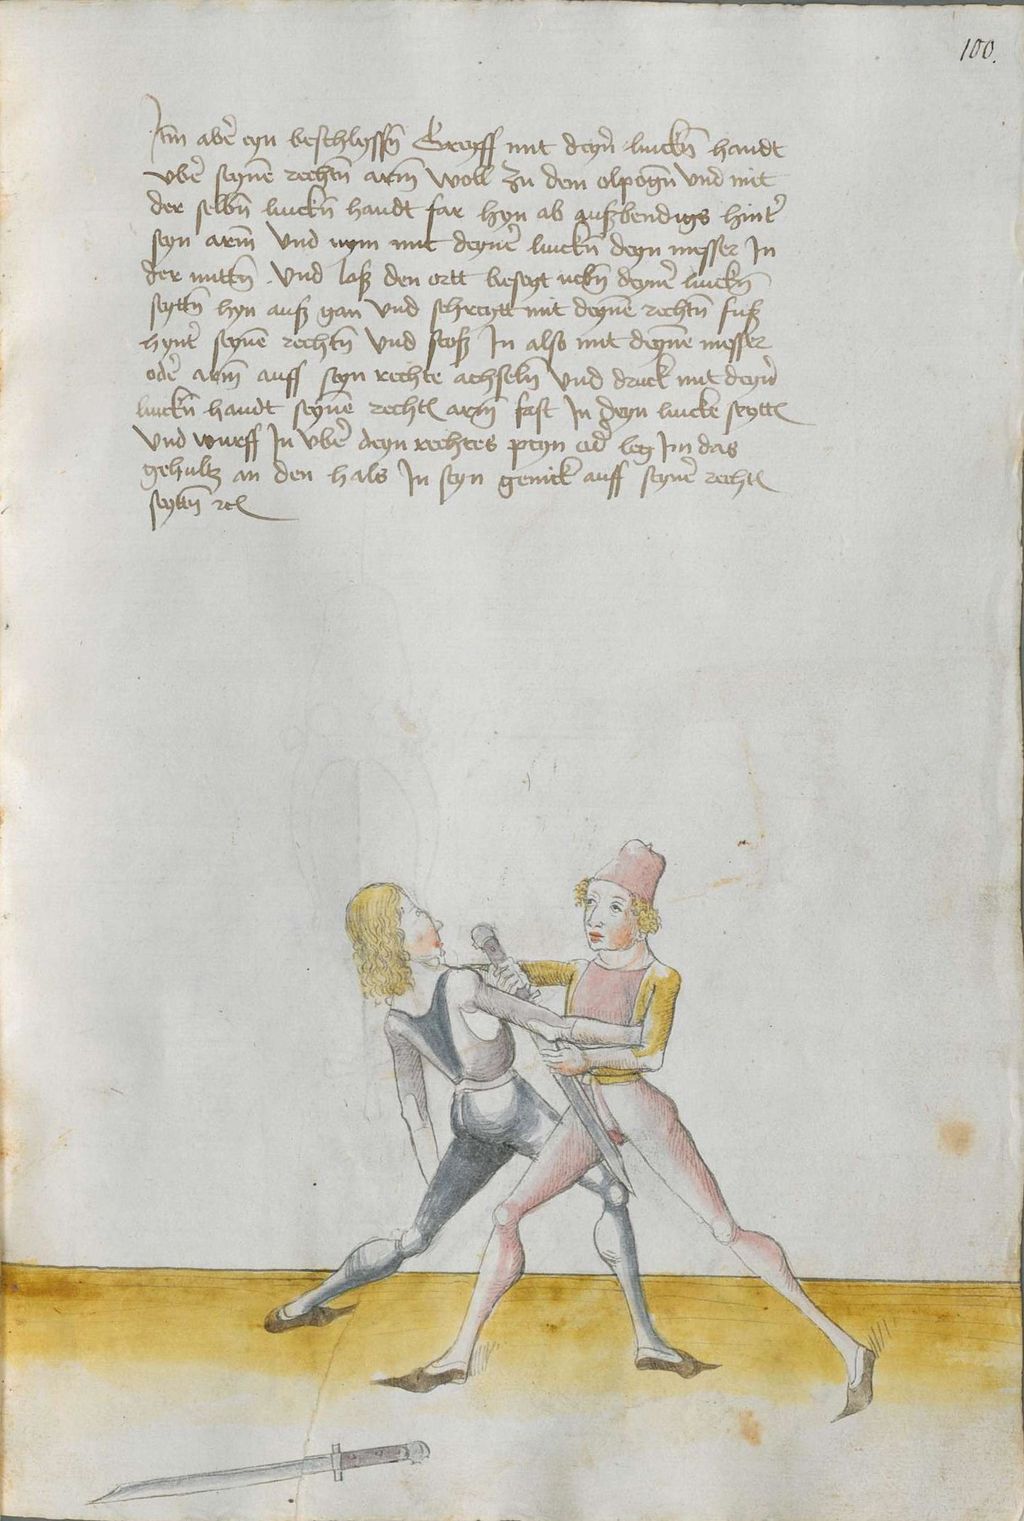 100.
Itm̄ aber̄ eyn beschlyssn̄ Greyff mit deyn̄ linckn̄ handt
vber̄ seynē rechtn̄ arm̄ woll zu dem elpogn̄ vnd mit
der selbn̄ linckn̄ handt far hyn ab außbendigs hintr̄
seyn arm̄ vnd nym mit deyner̄ linckn̄ deyn messer In
der mittn̄ vnd laß den ortt beseyt nebn̄ deyner̄ linckn̄
seyttn̄ hyn auß gan vnd schreytt mit deynē rechtn̄ fuß
hyntr̄ seynē rechtn̄ vnd stoß In also mit deynē messer
oder̄ arm̄ auff seyn rechte achseln̄ vnd druck mit deyn̄
linckn̄ handt seynē rechtn̄ arm̄ fast In deyn lincke seyttn̄
vnd wurff In vber̄ deyn rechtes peyn od̄ leg Im das
gehultz an den hals In seyn genick auff seyner̄ rechtn̄
seyttn̄ rc̄